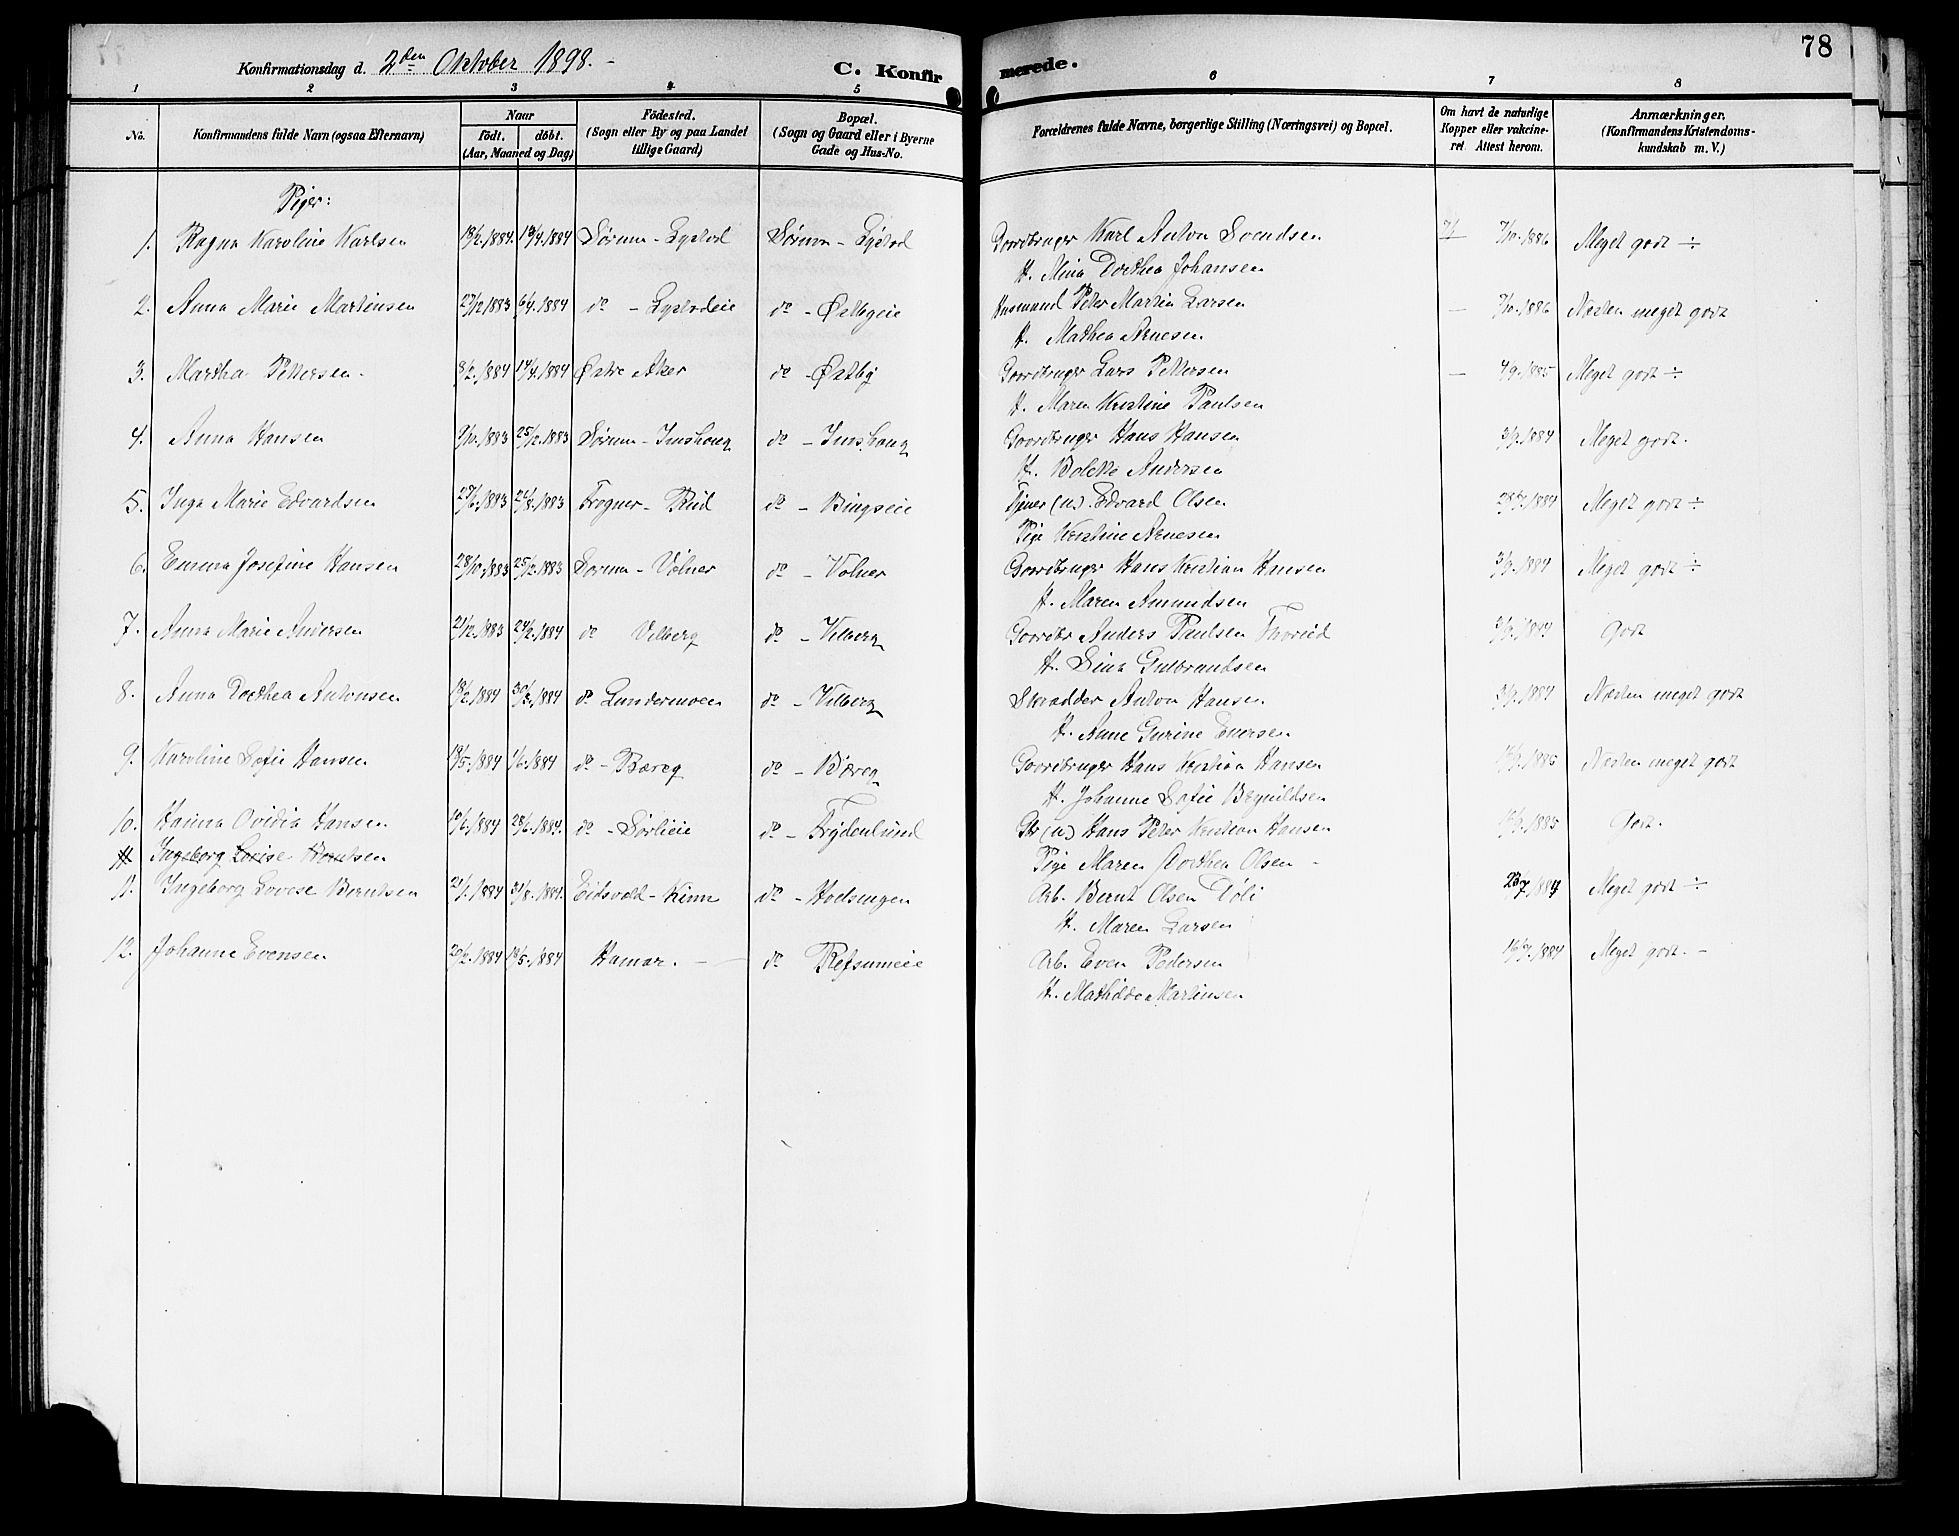 78
Konfirmationsdag d. 2den Oktober 1898. C. Konfirmerede.
1 2 3 4 5 6 7 8
No. Konfirmandens fulde Navn (ogsaa Efternavn) Naar födt. döbt. (Aar, Maaned og Dag) Födested. (Sogn eller By og paa Landet tillige Gaard) Bopæl. (Sogn og Gaard eller i Byerne Gade og Hus-No. Forældrenes fulde Navne, borgerlige Stilling (Næringsvei) og Bopæl. Om havt de naturlige Kopper eller vakcineret. Attest herom. Anmærkninger. (Konfirmandens Kristendomskundskab m. V.)
Piger:
1. Ragna Karoline Karlsen 18/2.1884. 13/4.1884 Sørum - Lystad Sørum - Lystad Gaardbruger Karl Anton Svendsen 7/10.1886 Meget godt ÷
H. Mina Dorthea Johansen
2. Anna Marie Martinsen 27/12.1883 6/4.1884 do - Lystadeie do - Østbyeie Husmand Peter Martin Larsen — 7/10.1886 Næsten meget godt
H. Mathea Arnesen
3. Martha Pettersen. 8/2.1884 14/4.1884 Østre Aker do - Østby Gaardbruger Lars Pettersen — 4/9.1885 Meget godt ÷
H. Maren Kristine Paulsen
4. Anna Hansen 9/10.1883 25/12.1883 Sørum - Imshaug do - Imshaug Gaardbruger Hans Hansen 3/9.1884 Meget godt.
H. Bolette Andersen
5. Inga Marie Edvardsen 27/6.1883 26/8.1883 Frogner - Rud do - Bingseie Tjener (u). Edvard Olsen 1884 Meget godt ÷
Pige Kristine Arnesen
6. Emma Josefine Hansen 28/10.1883 25/12.1883 Sørum - Vølner do - Vølner Gaardbruger Hans Kristian Hansen 3/9.1884 Meget godt ÷
H. Maren Amundsen
7. Anna Marie Andersen 21/12.1883 24/2.1884 do Vilberg do - Vilberg Gaardbr Anders Paulsen 1884 Godt
H. Lina Gulbrandsen
8. Anna Dorthea Antonsen 18/2.1884 30/3.1884 do Lundermoen do - Vilberg Skrædder Anton Hansen 3/9.1884 Næsten meget godt
H. Anne Gurine Eversen
9. Karoline Sofie Hansen 18/5.1884 1/6.1884 do - Bæreg do - Bæreg Gaardbruger Hans Kristian Hansen 1885 Næsten meget godt
H. Johanne Sofie Brynildsen
10. Hanna Ovidia Hansen 10/6.1884 28/6.1884. do - Sørlieie do - Frydenlund Gbr (u) Hans Peter Kristian Hansen 1885 Godt.
11 Ingeborg Lovise Berntsen Pige Maren Dorthea Olsen -
11. Ingeborg Lovise Berntsen 21/7.1884 31/8.1884. Eidsvold - Kinn do - Hodsengen Arb. Bernt Olsen Døli 23/7.1887 Meget godt ÷
H. Maren Larsen
12. Johanne Evensen 20/2.1884 18/5.1884 Hamar. — do Refsumeie Arb. Even Pedersen 1884 Meget godt. -
H. Mathilde Martinsen